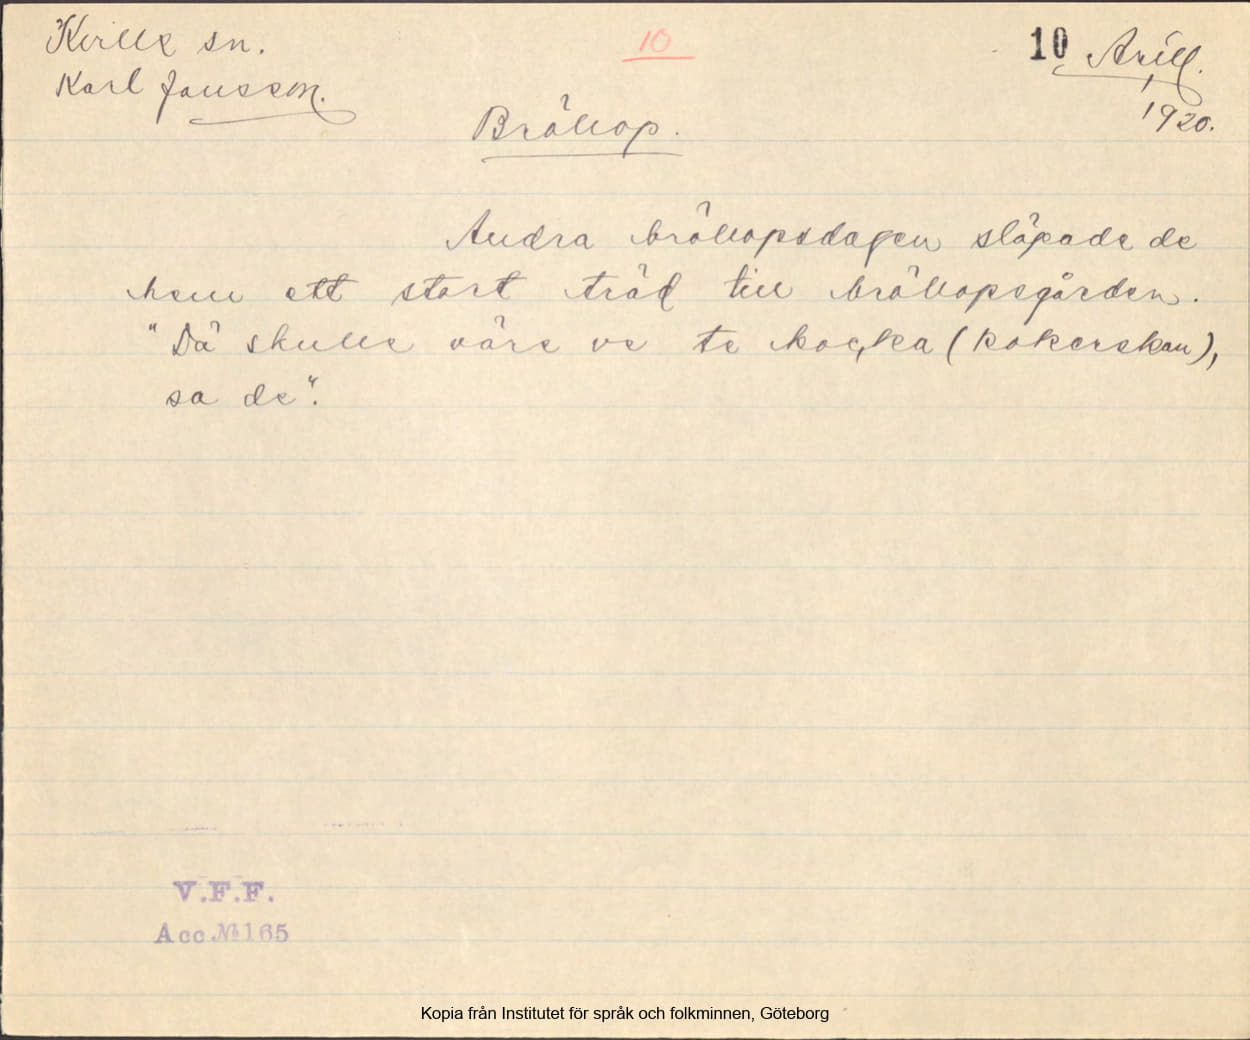 Kville sn.
10
10 Arill.
Karl Jansson.
1920.
Bröllop.
Andra bröllopsdagen släpade de
hem ett stort träd till bröllopsgården.
"Dä skulle våre ve te kocka (kokerskan),
sa de".
V.F.F.
Acc.№165
Kopia från Institutet för språk och folkminnen, Göteborg